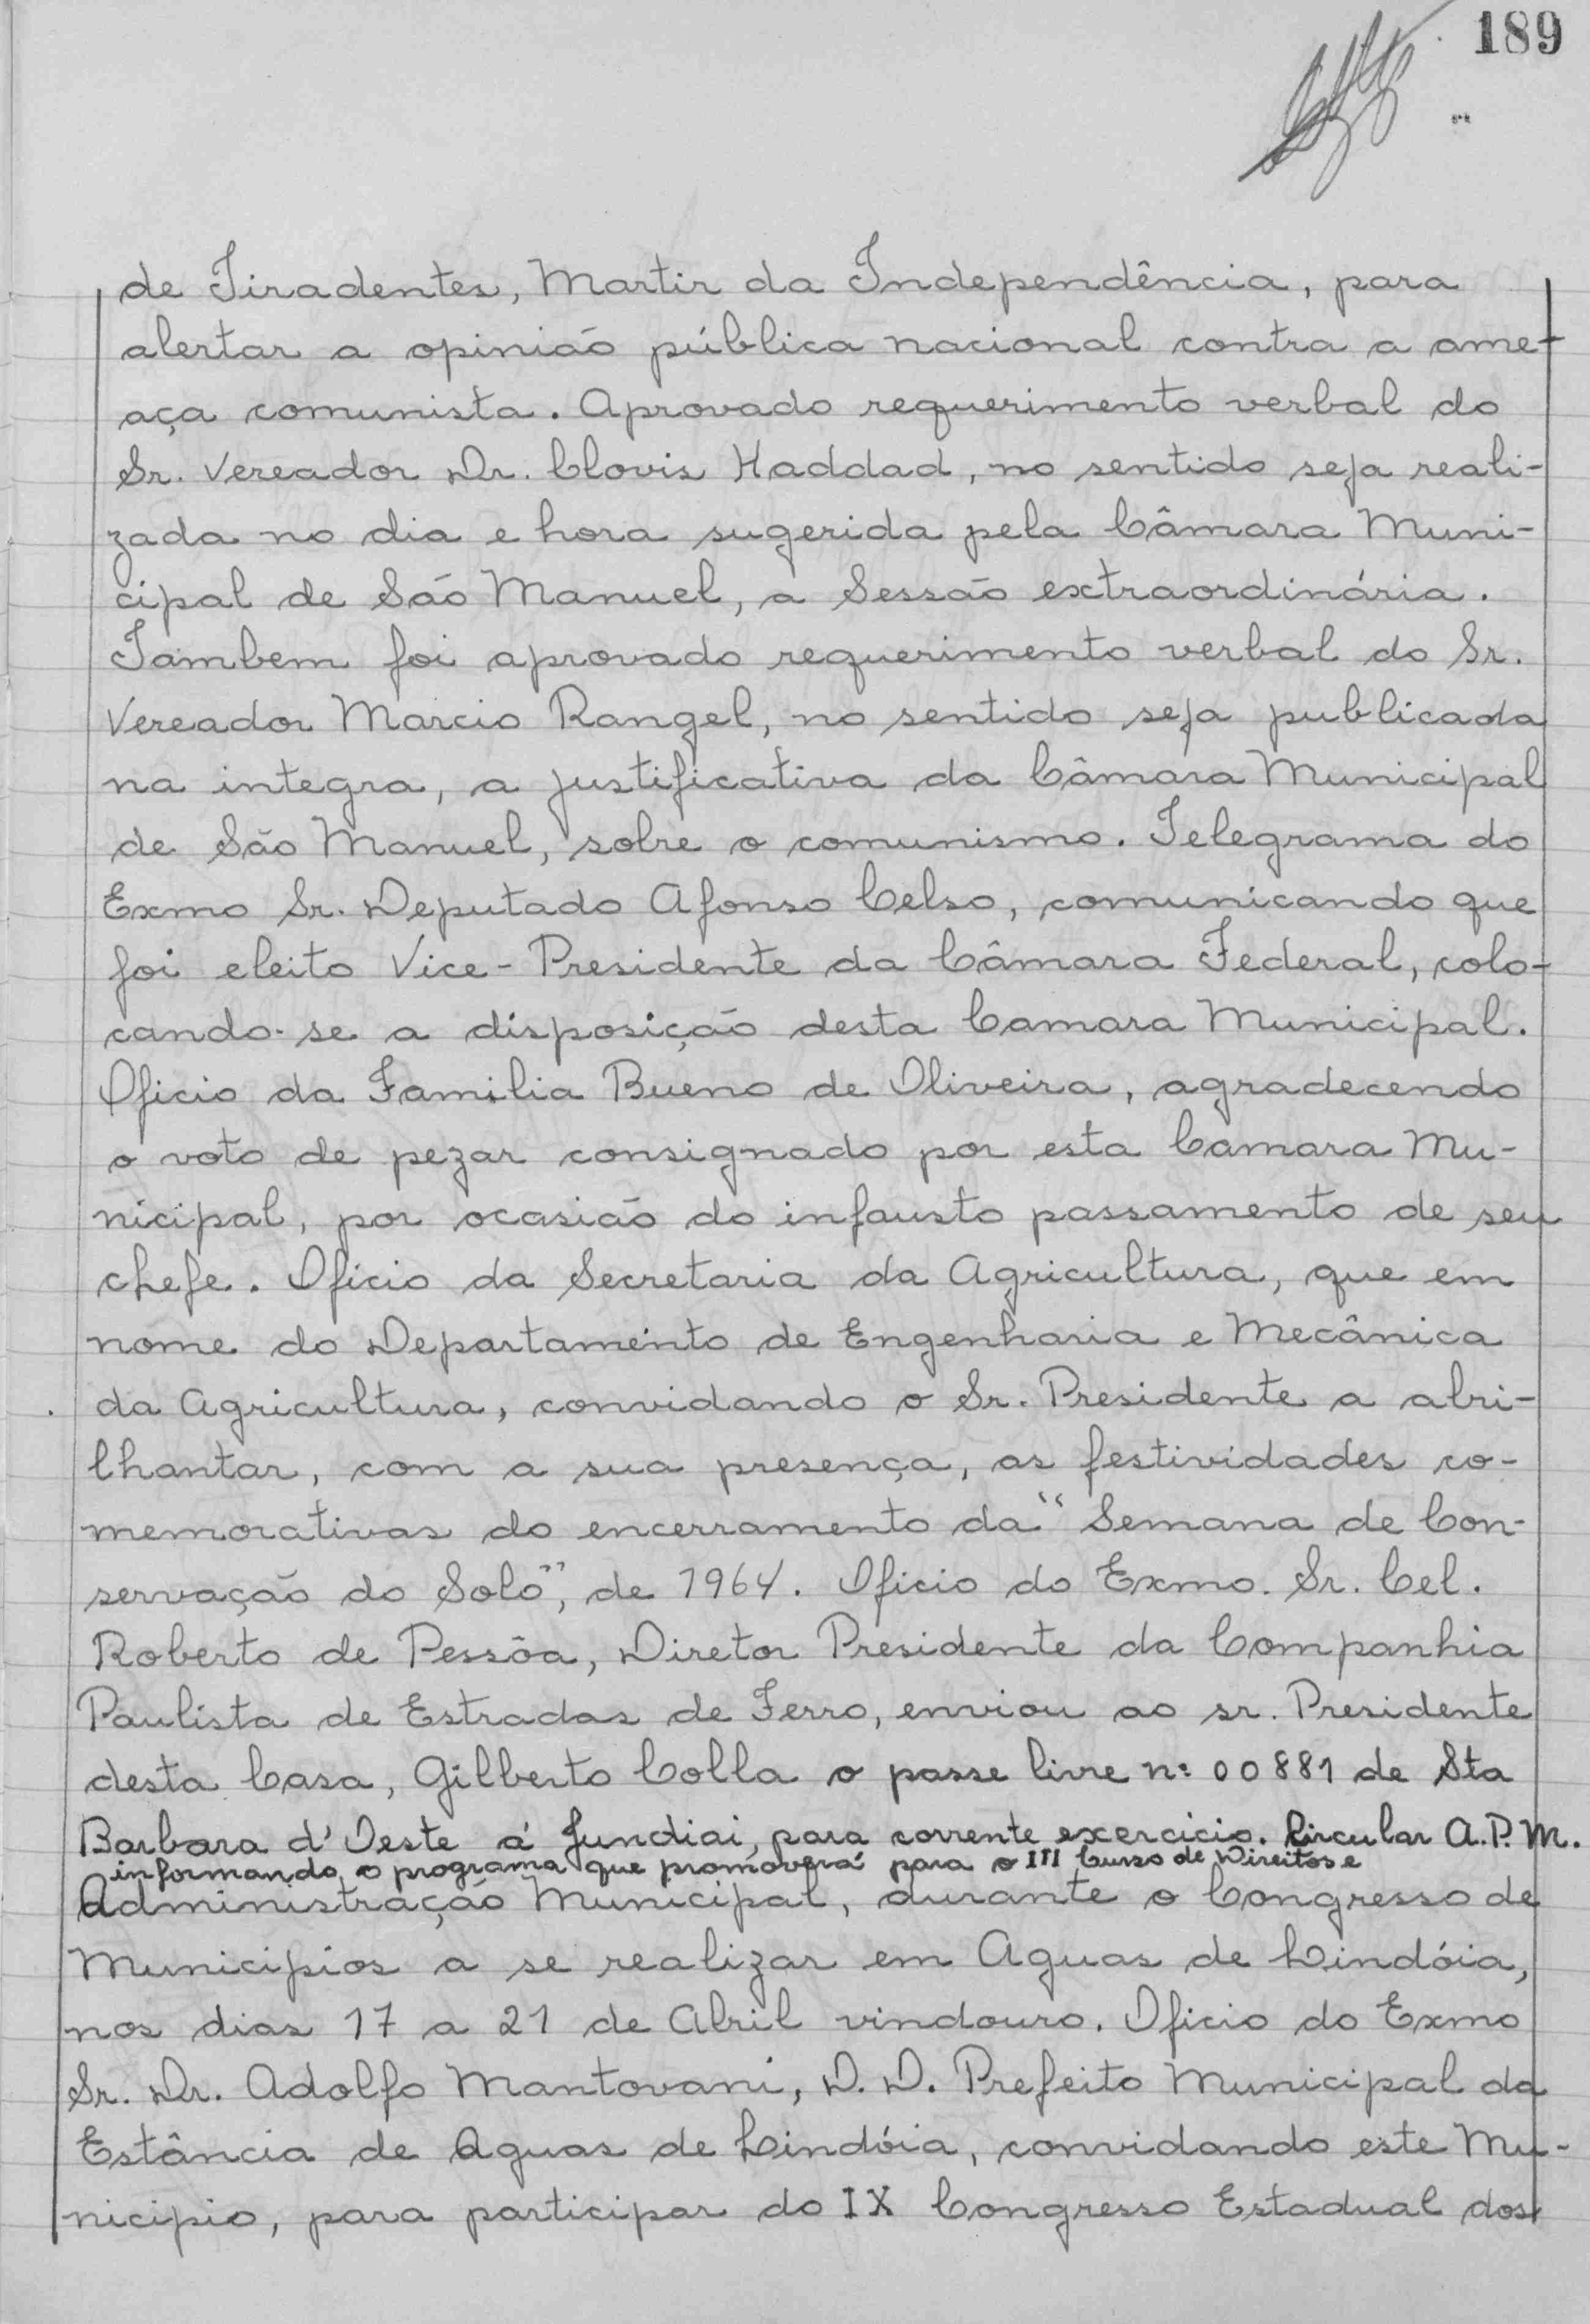 189
de Tiradentes, Martir da Independência, para
alertar a opinião pública nacional contra a ame-
aça comunista. Aprovado requerimento verbal do
Sr. Vereador Dr. Clovis Haddad, no sentido seja reali-
zada no dia e hora sugerida pela Câmara Muni-
cipal de São Manuel, a Sessão extraordinária.
Tambem foi aprovado requerimento verbal do Sr.
Vereador Marcio Rangel, no sentido seja publicada
na integra, a justificativa da Câmara Municipal
de São Manuel, sobre o comunismo. Telegrama do
Exmo Sr. Deputado Afonso Celso, comunicando que
foi eleito Vice-Presidente da Câmara Federal, colo-
cando-se a disposição desta Camara Municipal.
Oficio da Familia Bueno de Oliveira, agradecendo
o voto de pezar consignado por esta Camara Mu-
nicipal, por ocasião do infausto passamento de seu
chefe. Oficio da Secretaria da Agricultura, que em
nome do Departamento de Engenharia e Mecânica
da Agricultura, convidando o Sr. Presidente a abri-
lhantar, com a sua presença, as festividades co-
memorativas do encerramento da "Semana de Con-
servação do Solo", de 1964. Oficio do Exmo. Sr. Cel.
Roberto de Pessôa, Diretor Presidente da Companhia
Paulista de Estradas de Ferro, enviou ao sr. Presidente
desta Casa, Gilberto Colla o passe livre nº 00881 de Sta
Barbara d'Oeste á Jundiai, para corrente exercicio. Circular A.P.M.
informando o programa que promoverá para o III Curso de Direitos e
Administração Municipal, durante o Congresso de
Municipios a se realizar em Aguas de Lindóia,
nos dias 17 a 21 de Abril vindouro. Oficio do Exmo
Sr. Dr. Adolfo Mantovani, D. D. Prefeito Municipal da
Estância de Aguas de Lindóia, convidando este Mu-
nicipio, para participar do IX Congresso Estadual dos